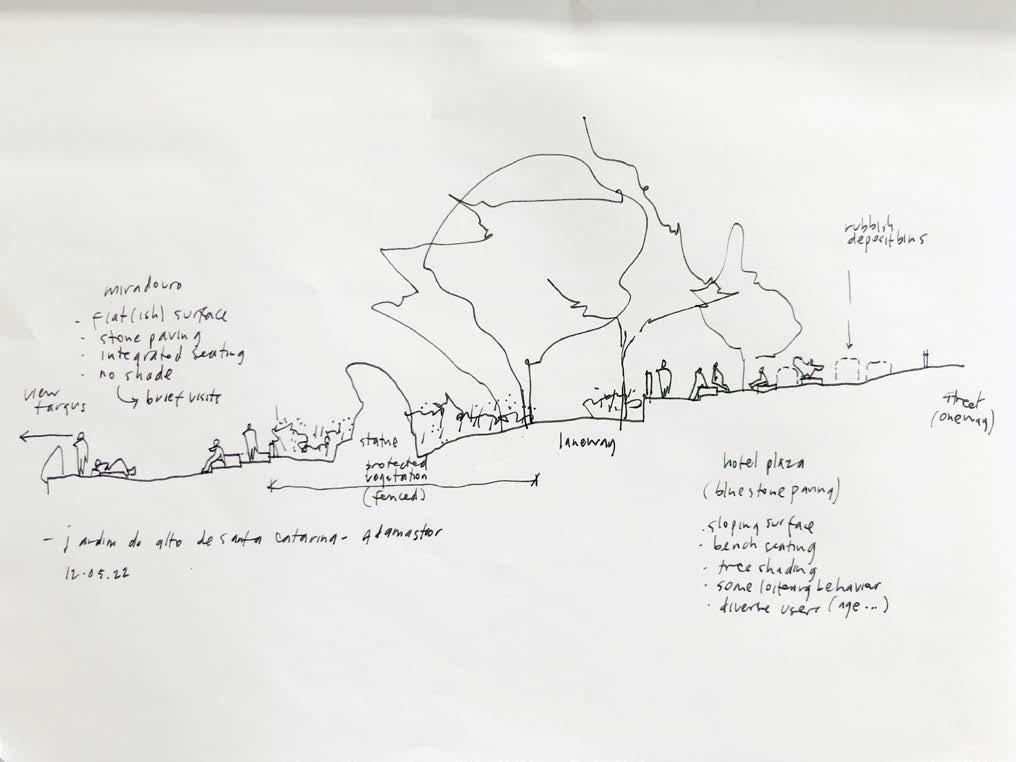 miradouro
- flat(ish) surface
- stone paving
· integrated seating
· no shade
brief visits
view
targus
rubbish
deposit bins
statue
protected
vegetation
(fenced)
laneway
street
(oneway)
hotel plaza
(bluestone paving)
. sloping surface
· bench seating
· tree shading
· some loitering behavior
· diverse users (age...)
- jardim do alto de santa catarina - Adamastor
12.05.22